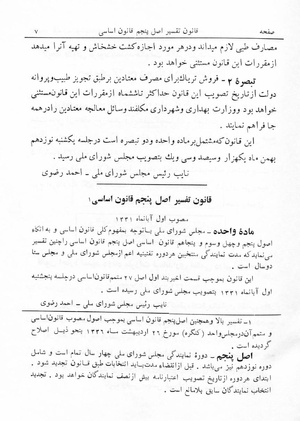 صفحه قانون تفسیر اصل پنجم قانون اساسی ۷
مصارف طبی لازم میداند ودرهر مورد اجازه کشت خشخاش و تهیه آنرا میدهد
ازمقررات این قانون مستثنی خواهد بود .
تبصره ۲ـ فروش تریاك برای مصرف معتادین برطبق تجویز طبیب و پروانه
دولت ازتاریخ تصویب این قانون حداکثر تا ششماه ازمقررات این قانون مستثنی
خواهد بود ووزارت بهداری وشهرداری مکلفند وسائل معالجه معتادین رادرهمه
جا فراهم نمایند .
این قانون که مشتمل برماده واحده ودو تبصره است درجلسه یکشنبه نوزدهم
بهمن ماه یکهزار وسیصد وسی ویك بتصویب مجلس شورای ملی رسید .
نایب رئیس مجلس شورای ملی ـ احمد رضوی
قانون تفسیر اصل پنجم قانون اساسی ۱
مصوب اول آبانماه ۱۳۳۱
ماده واحده ـ مجلس شورای ملی باتوجه بمفهوم کلی قانون اساسی و به اتکاء
اصول پنجم وچهل وسوم و پنجاهم قانون اساسی اصل پنجم قانون اساسی را چنین تفسیر
می‌نماید که مدت نمایندگی منتخبین هردوره تقنینیه اعم از مجلس شورای ملی و مجلس سنا
دوسال است .
این قانون بموجب قسمت اخیربند اول اصل ۲۷ متمم قانون اساسی درجلسه پنجشنبه
اول آبانماه ۱۳۳۱ بتصویب مجلس شورای ملی رسیده است .
نایب رئیس مجلس شورای ملی ـ احمد رضوی
۱ـ تفسیر بالا وهمچنین اصل پنجم قانون اساسی بموجب اصول مصوب قانون اساسی
و متمم آن درمجلس واحد (کنگره) مورخ ۲۶ اردیبهشت ماه ۱۳۳۶ بنحو ذیل اصلاح
گردیده است :
اصل پنجم ـ دورهٔ نمایندگی مجلس شورای ملی چهار سال تمام است و شامل
دوره نوزدهم نیز می‌باشد . قبل ازانقضاء مدت باید انتخابات طبق قانون تجدید شود .
ابتدای هردوره ازتاریخ تصویب اعتبارنامه بیش ازنصف نمایندگان خواهد بود . تجدید
انتخاب نمایندگان سابق بلامانع است .